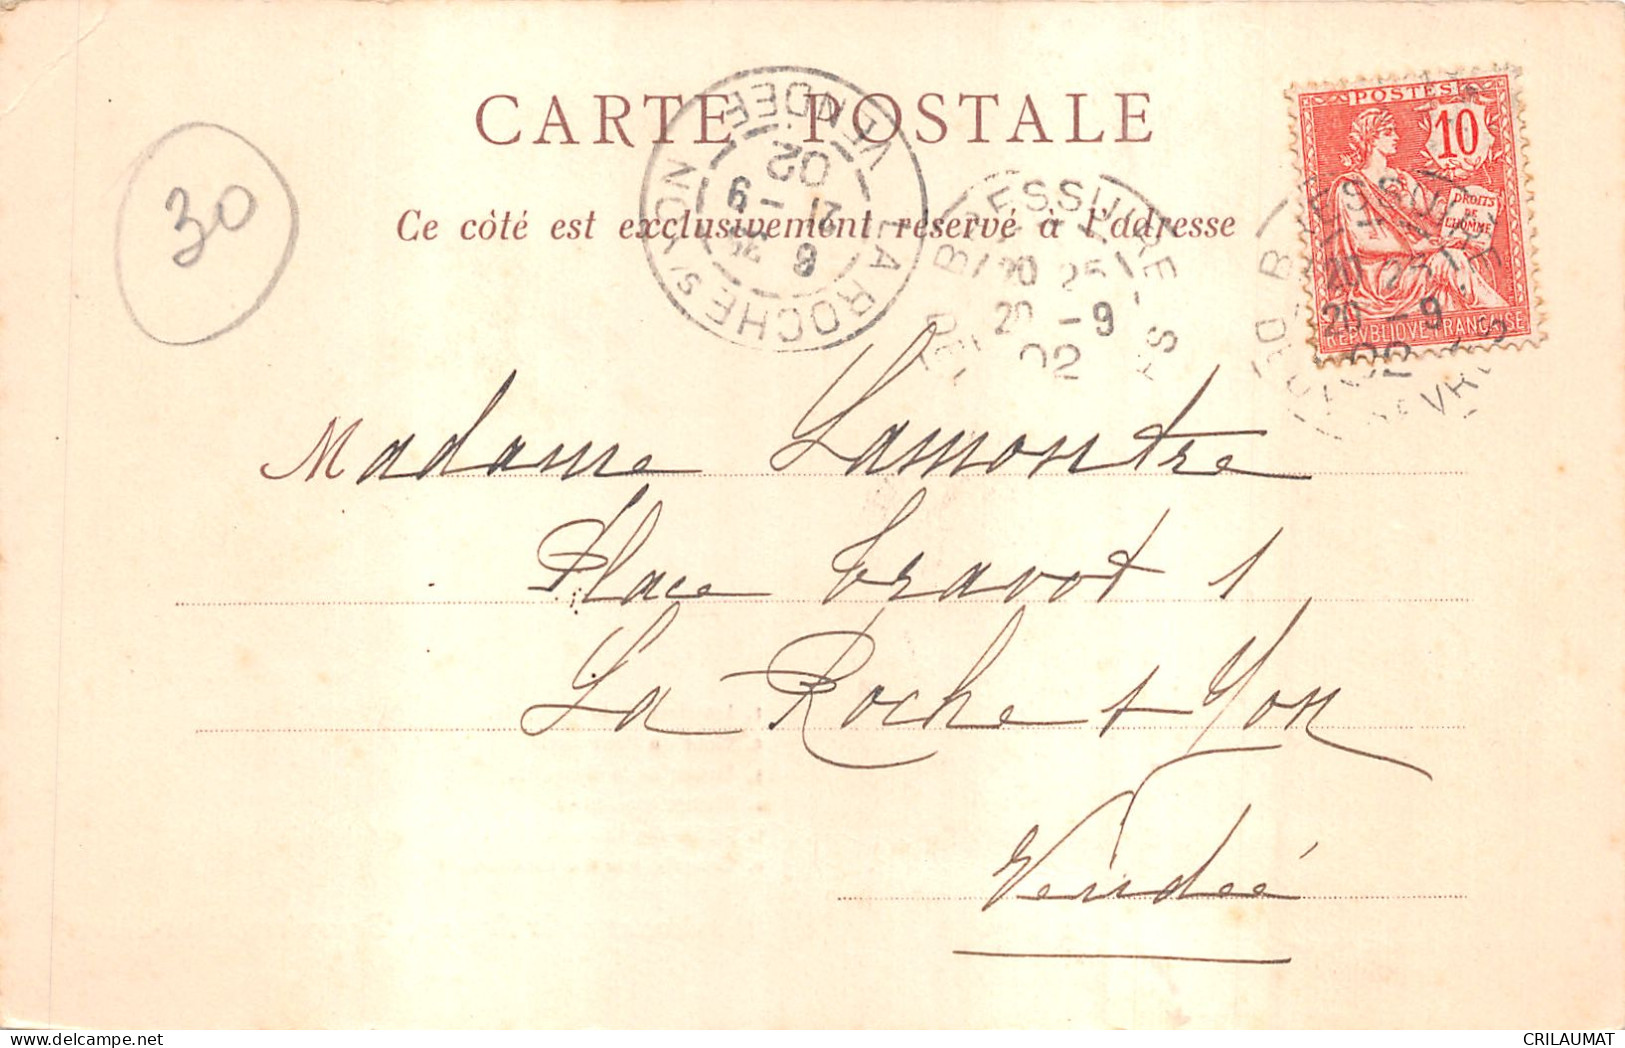 CARTE POSTALE
Ce côté est exclusivement réservé à l'adresse
30
LA ROCHE S/ YON
VENDÉE
6 35
21 -9
02
BRESSUIRE
DEUX
20 25
20 -9
02
POSTES
10
DROITS
DE
L'HOMME
REPVBLIQVE FRANÇAISE
BRESSUIRE
20 25
20 -9
02
SEVRES
Madame Lamontre
Place travot 1
La Roche s Yon
Vendée
CRILAUMAT